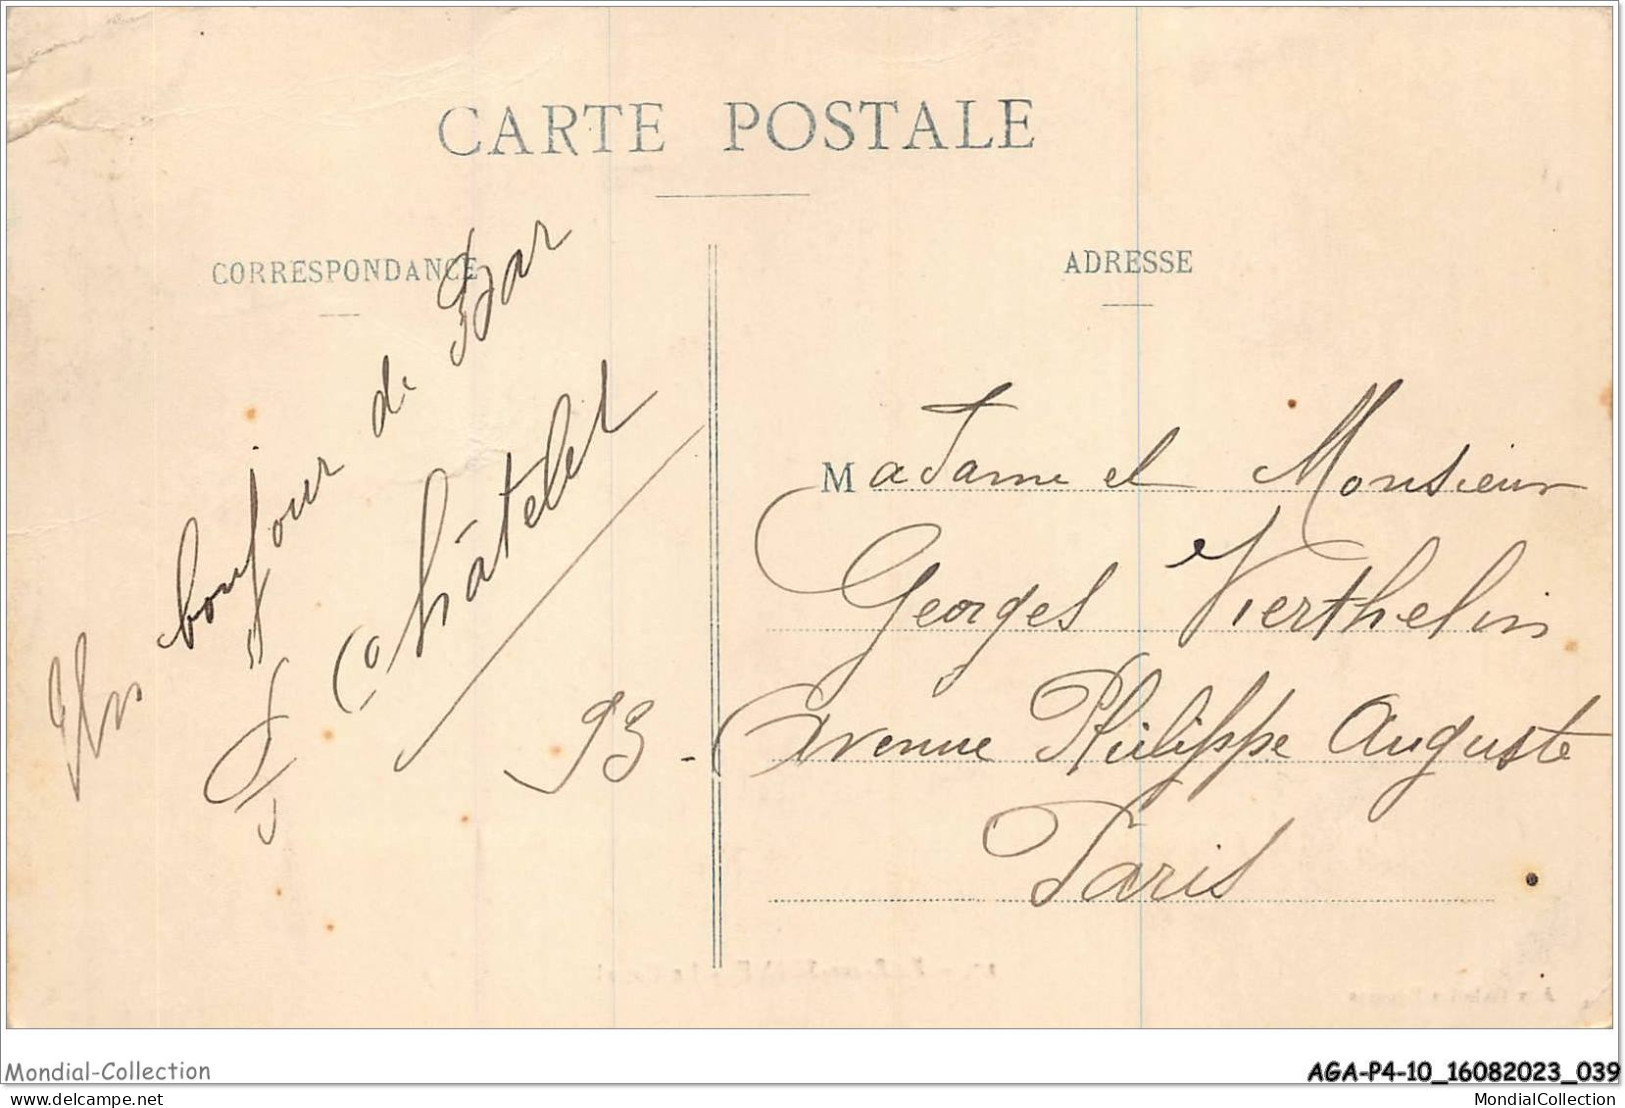 CARTE POSTALE
CORRESPONDANCE
ADRESSE
Un bonjour de Bar
Châtelet
Madame et Monsieur
Georges Vierthelin
93 - Avenue Philippe Auguste
Paris
Mondial-Collection
AGA-P4-10_16082023_039
delcampe.net
MondialCollection